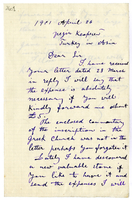 1901 April 20
Turkey in Asia
Dear Sir
I have received
your letter dated 28 March
in reply I will say that
the expense is absolutely
necessary if you will
kindly forward me about
the £5.
The enclosed commentary
of the inscription in the
Greek Church was not in the
letter perhaps you forgot it.
Lately I have discovered
a new valuable stone if
you like to know it and
send the expenses I will